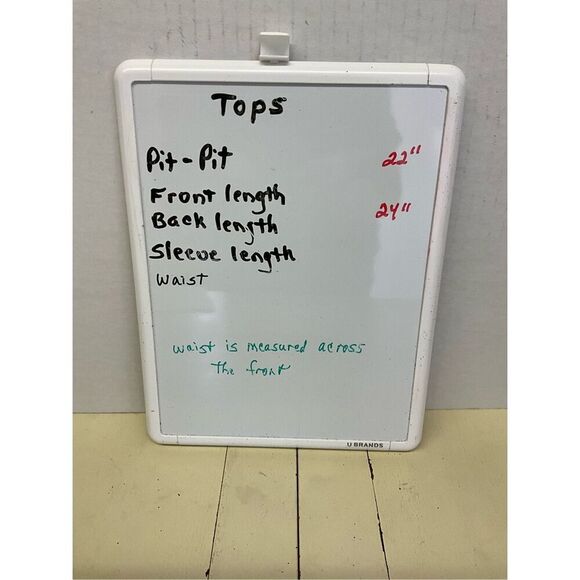 Tops
Pit-Pit 22"
Front length
Back length 24"
Sleeve length
Waist
waist is measured across
The front
U BRANDS